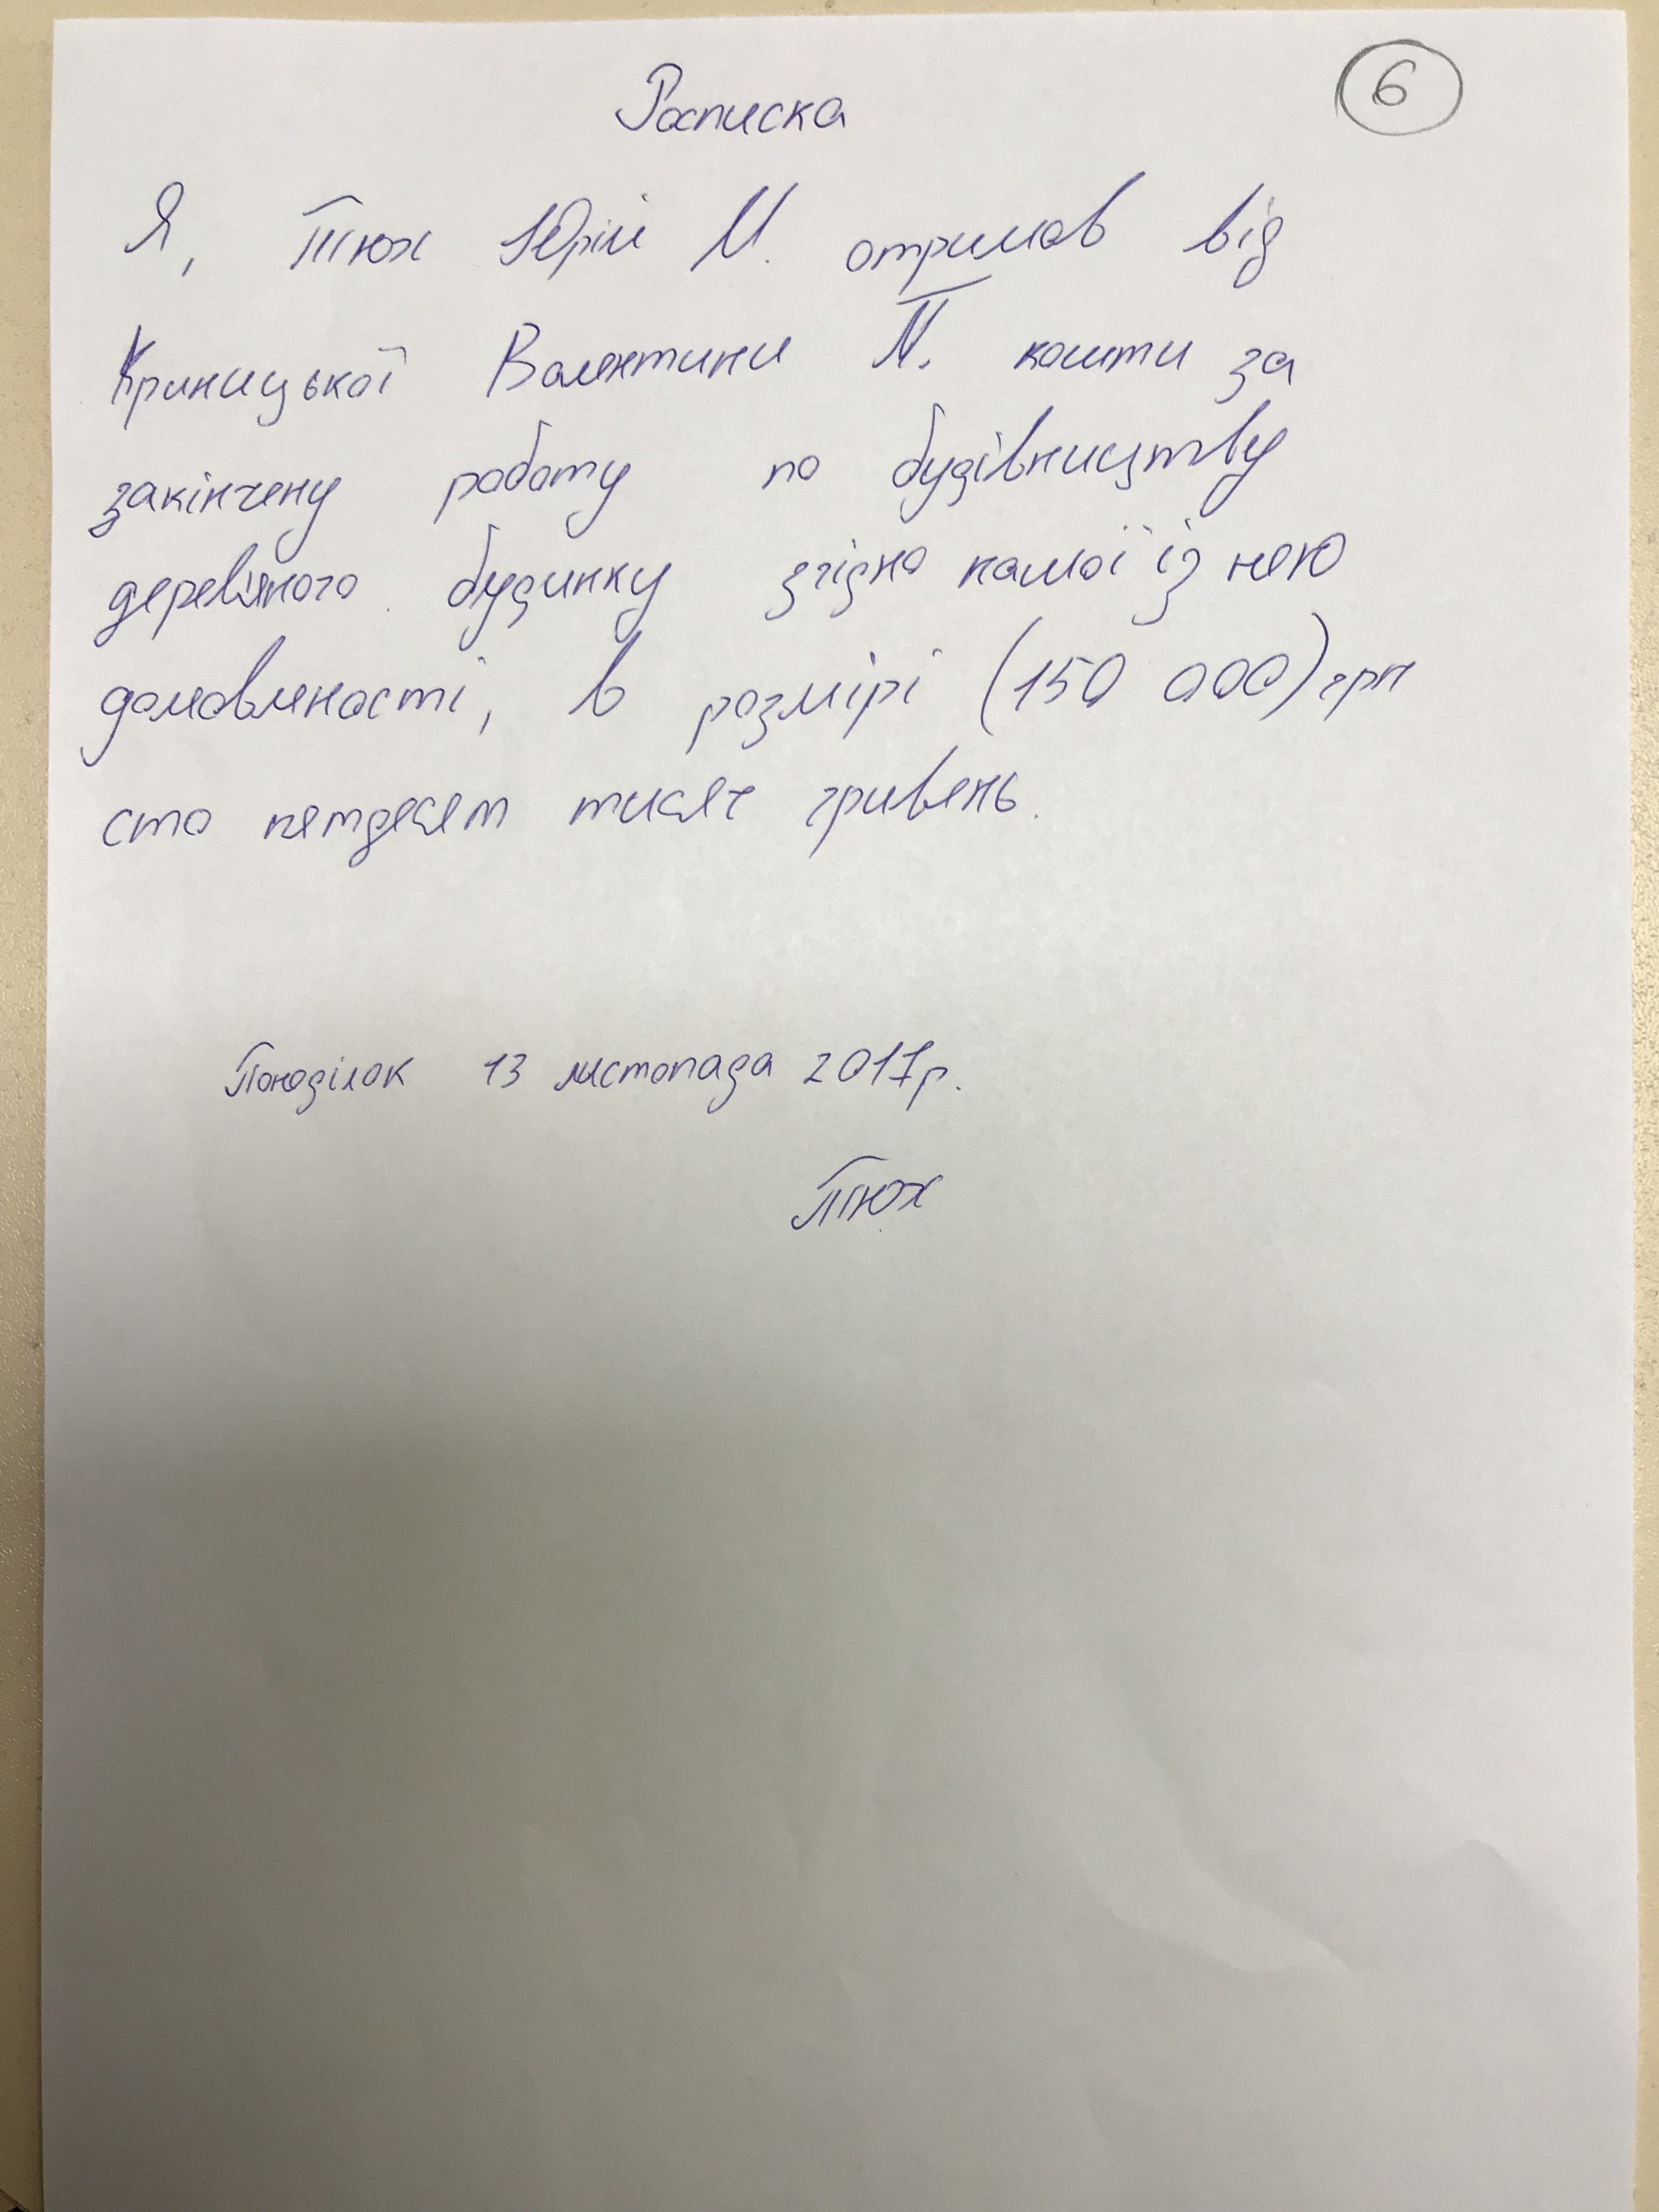 Расписка
6
Я, Тюх Юрій М. отримав від
Криницької Валентини П. кошти за
закінчену роботу по будівництву
деревяного будинку згідно нашої із нею
домовленості, в розмірі (150 000) грн
сто пятдесят тисяч гривень.
Понеділок 13 листопада 2017р.
Тюх